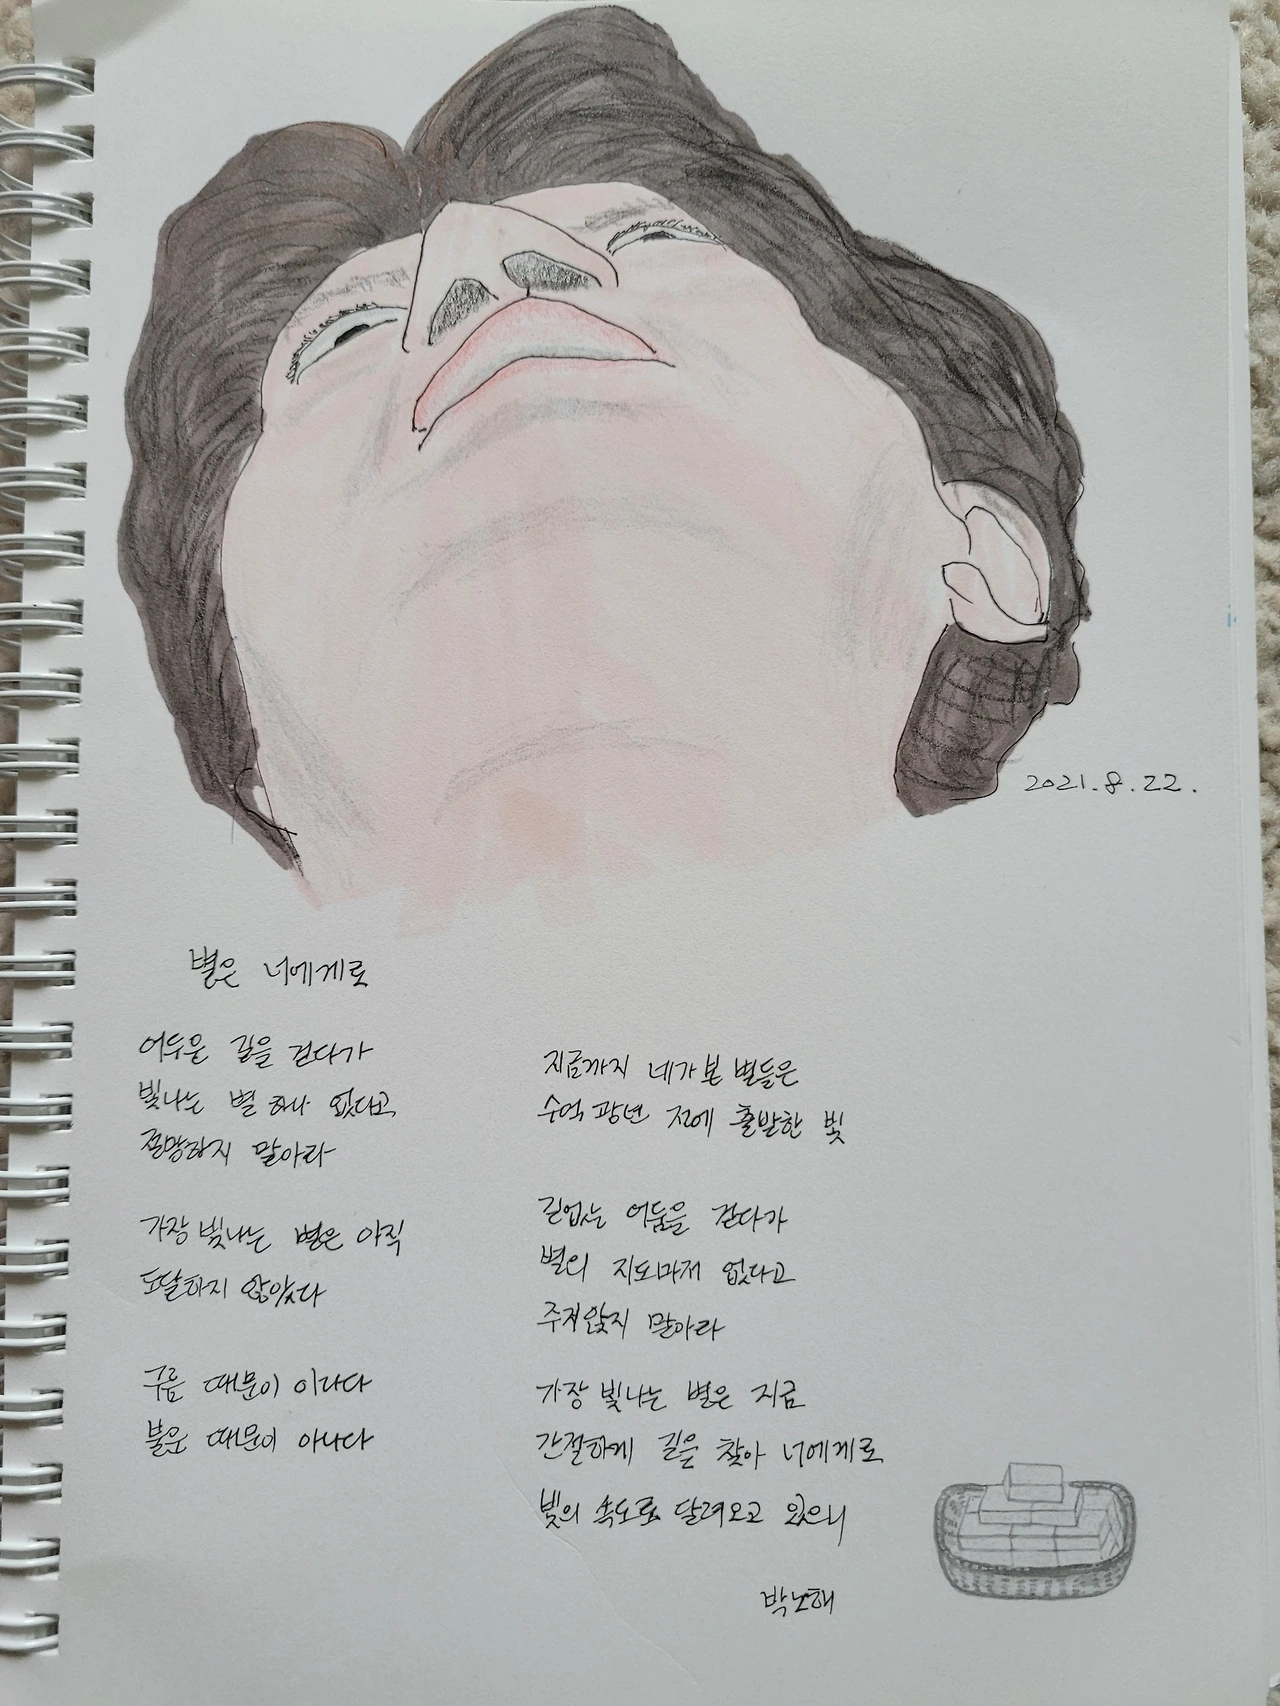 2021.8.22.
별은 너에게로
어두운 길을 걷다가
빛나는 별 하나 없다고
절망하지 말아라
가장 빛나는 별은 아직
도달하지 않았다
구름 때문이 이라다
불운 때문이 아니다
지금까지 네가 본 별들은
수억 광년 전에 출발한 빛
길 없는 어둠을 걷다가
별의 지도마저 없다고
주저앉지 말아라
가장 빛나는 별은 지금
간절하게 길을 찾아 너에게로
빛의 속도로 달려오고 있으니
박노해